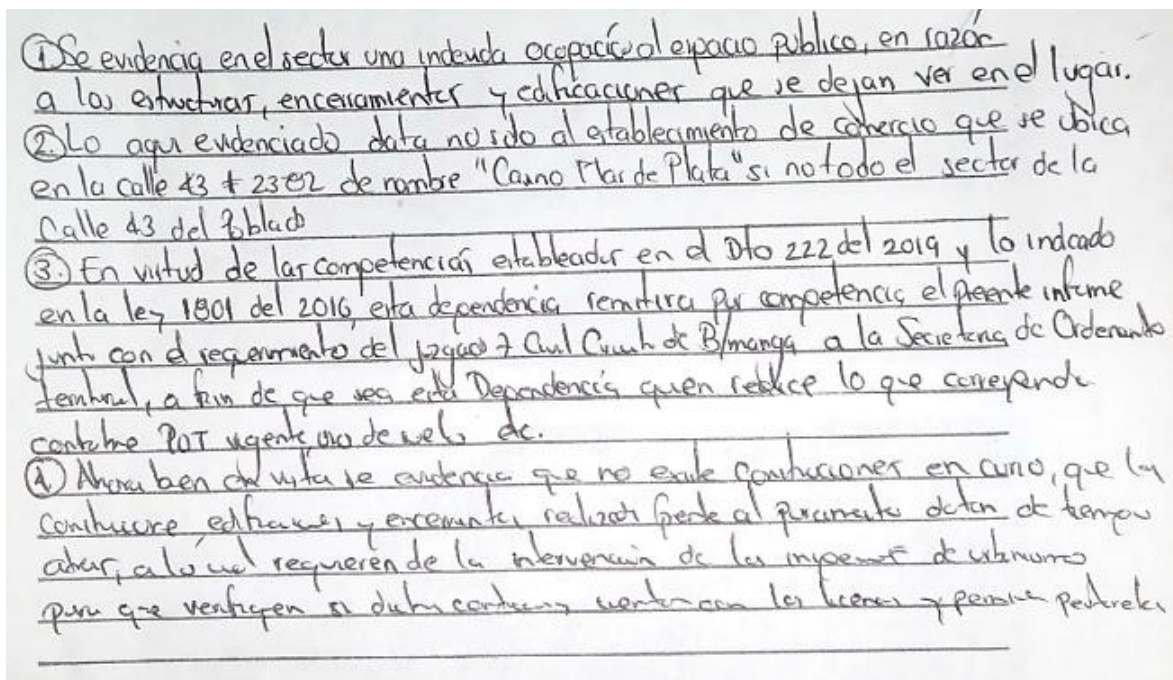 ① Se evidencia en el sector una indeuda ocopació al espacio publico, en razón
a las estructuras, encerramientos y edificaciones que se dejan ver en el lugar.
② Lo aqui evidenciado data no sólo al establecimiento de comercio que se ubica
en la calle 43 # 23 02 de nombre "Casino Mar de Plata" si no todo el sector de la
Calle 43 del Poblado
③. En virtud de las competencias establecidas en el Dto 222 del 2019 y lo indicado
en la ley 1801 del 2016, esta dependencia remitira por competencia el presente informe
junto con el requerimiento del juzgado 7 Civil Circuito de B/manga a la Secretaria de Ordenamiento
territorial, a fin de que sea esta Dependencia quien realice lo que corresponde
POT vigente uso de suelo etc.
④ Ahora bien se evidencia que no existe construcciones en curso, que la
y realizados frente al datan de tiempo
atras, a lo cual requieren de la intervención de los de urbanismo
para que verifiquen si cuentan con las licencias y permisos